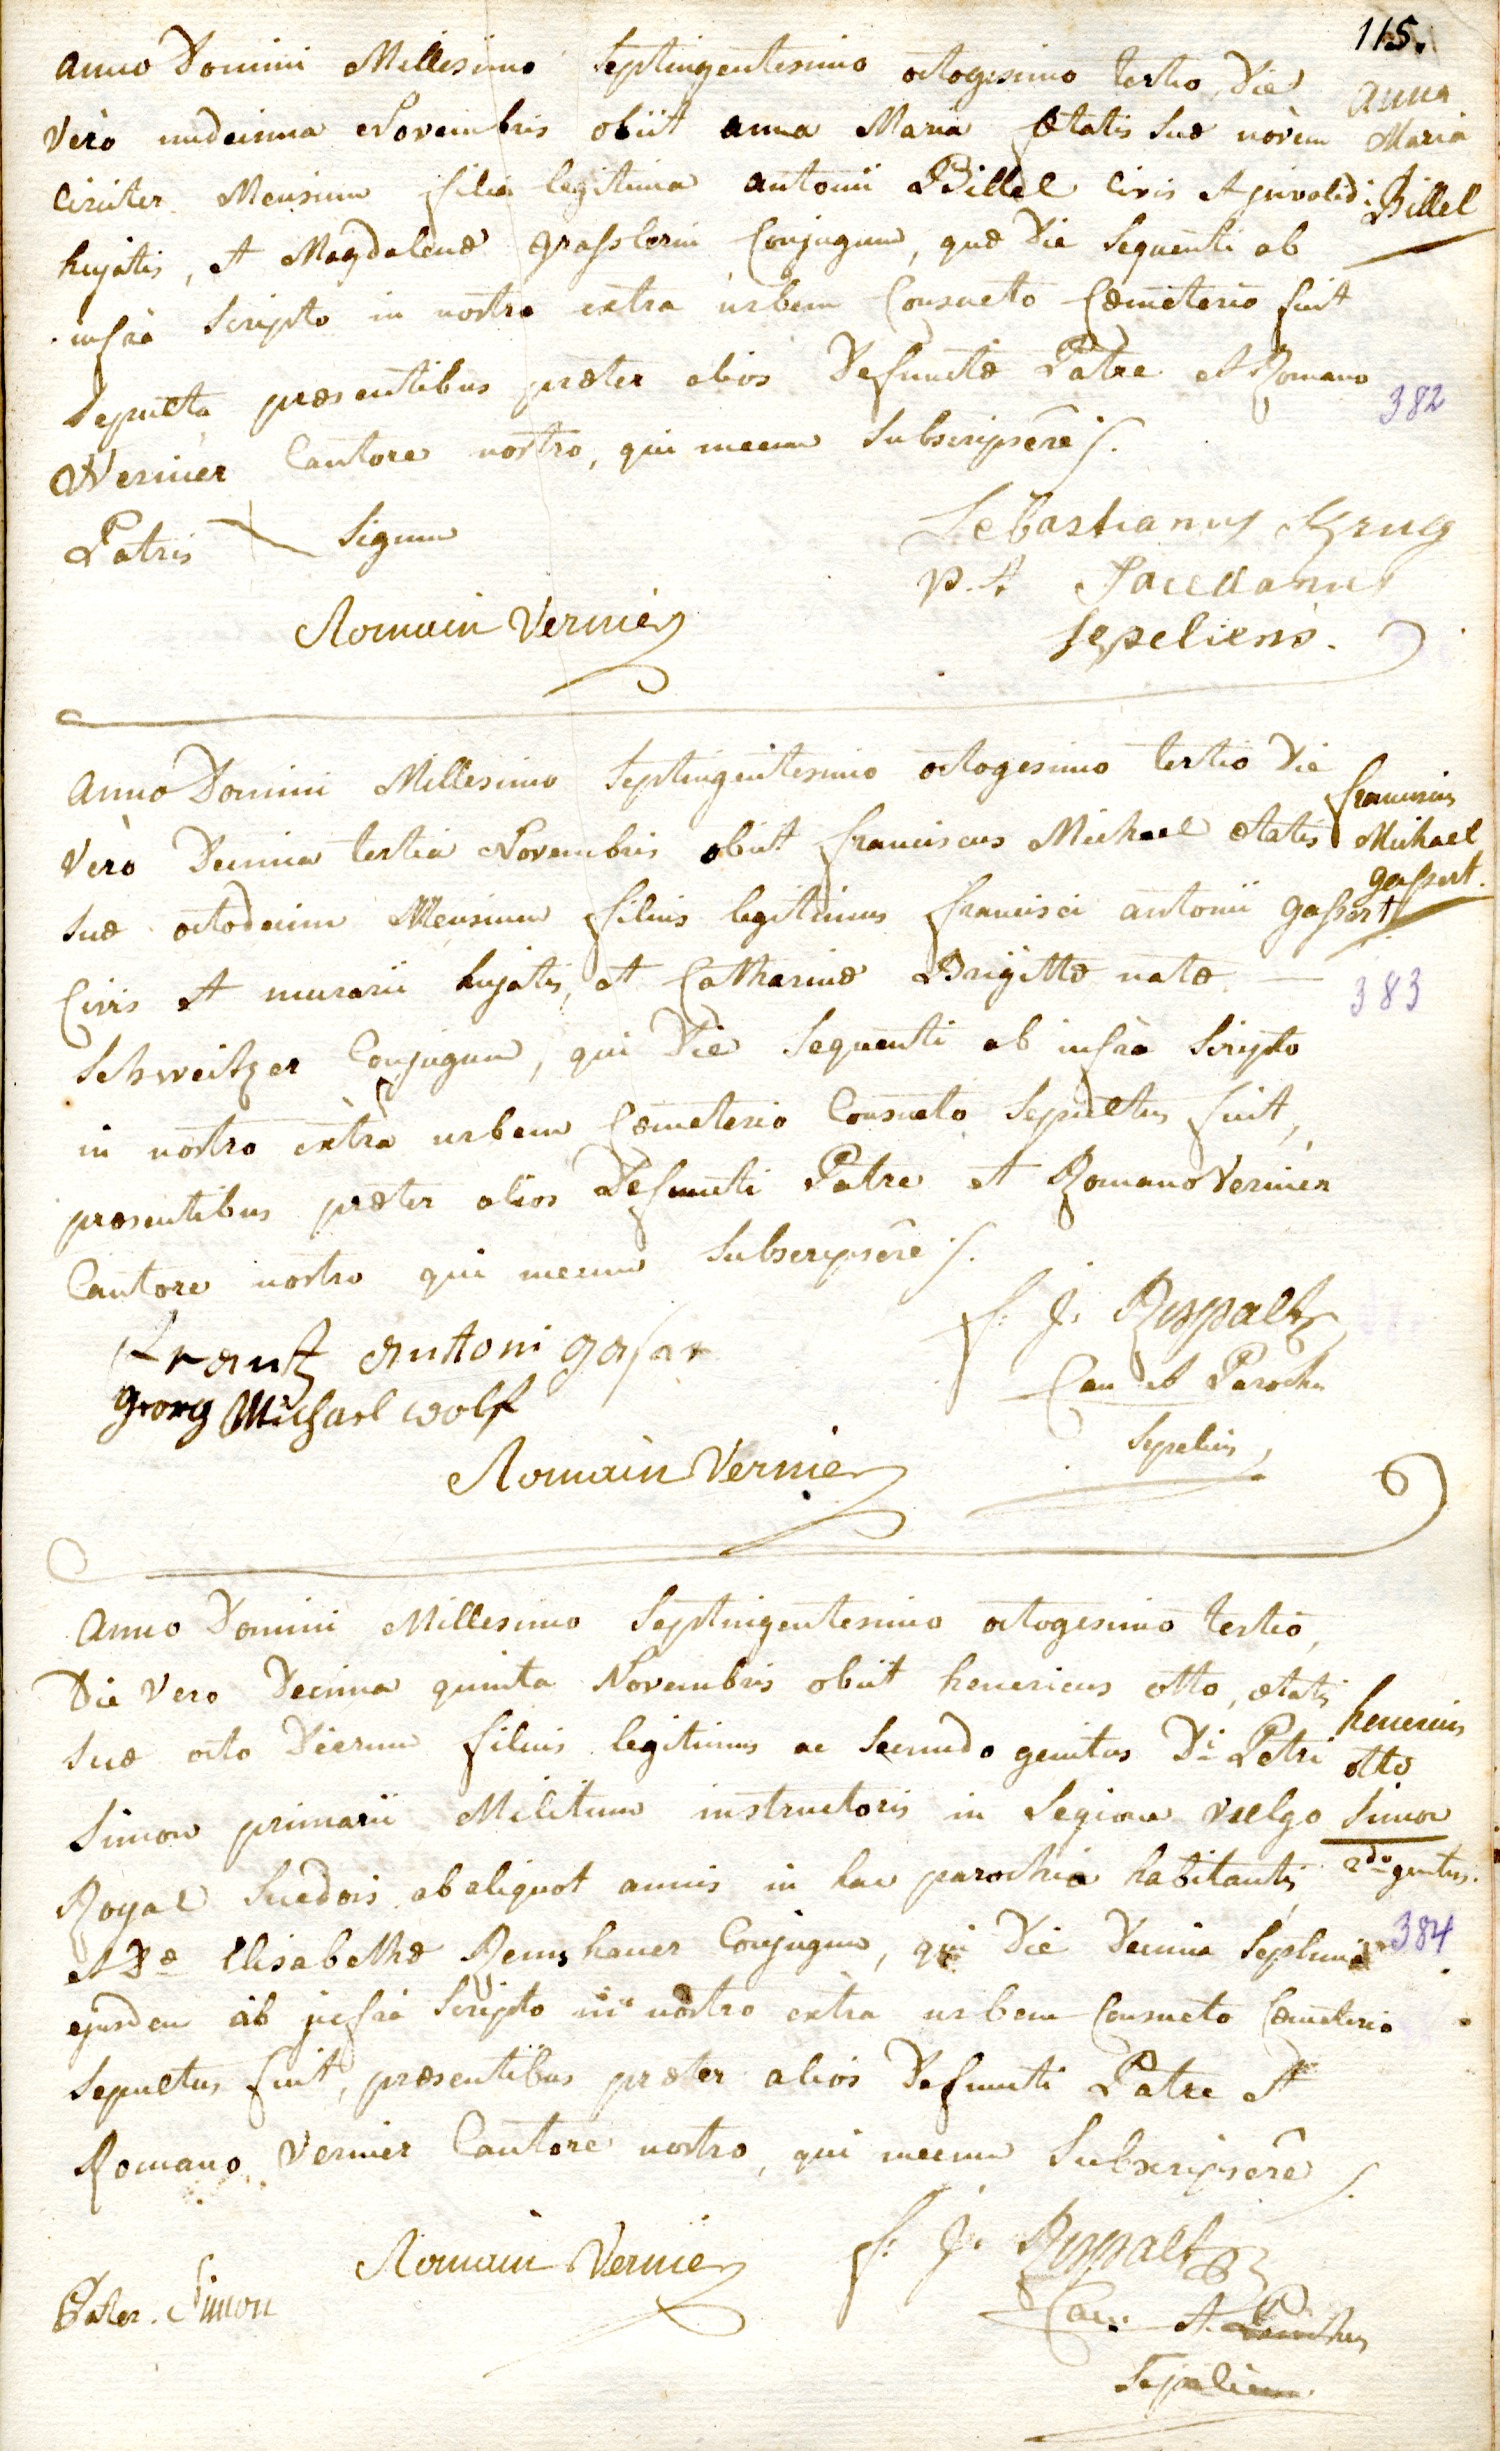 115.
Anno Domini Millesimo Septingentesimo octogesimo tertio Die
Vero undecima Novembris obiit anna Maria Ætatis suæ novem
Circiter Mensium filia legitima Antonii Billel Civis et
hujatis, et Magdalenæ grasslerin Conjugum, quæ Die sequenti ab
infra scripto in nostro extra urbem Consueto Cœmeterio fuit
sepulta præsentibus præter alios Defunctæ Patre et Romano
Vernier Cantore nostro, qui mecum subscripsêre ./.
anna
Maria
Billel
382
Patris signum
Romain Vernier
Sebastianus Krug
p.t. Sacellanus
sepeliens.
Anno Domini Millesimo Septingentesimo octogesimo tertio Die
Vero Decima tertia Novembris obiit franciscus Michael ætatis
suæ octodecim Mensium filius legitimus francisci antonii gassert
Civis et murarii hujatis, et Catharinæ Brigittæ natæ
Schweitzer Conjugum, qui Die sequenti ab infra scripto
in nostro extrà urbem Cœmeterio Consueto sepultus fuit,
præsentibus præter alios Defuncti Patre et Romano Vernier
Cantore nostro qui mecum subscripsêre ./.
franciscus
Michael
gassert.
383
Frantz antoni gasar
georg Michael wolf
Romain Vernier
f: J. Rispaltz
Can et Parochus
Sepeliens
Anno Domini Millesimo Septingentesimo octogesimo tertio,
Die Vero Decima quinta Novembris obiit henericus otto, ætatis
suæ octo Dierum filius legitimus ac secundo genitus Di Petri
Simon primarii Militum instructoris in Legione vulgo
Royal Suedois ab aliquot annis in hac parochia habitantis,
et Dæ Elisabethæ Remshauer Conjugum, qui Die Decima septima
ejusdem ab infra scripto in nostro extra urbem Consueto Cœmeterio
sepultus fuit, præsentibus præter alios Defuncti Patre et
Romano Vernier Cantore nostro, qui mecum subscripsêre ./.
henericus
otto
Simon
2do genitus.
384
Romain Vernier
Pater. Simon
f: J. Rispaltz
Can: et Parochus
Sepeliens.